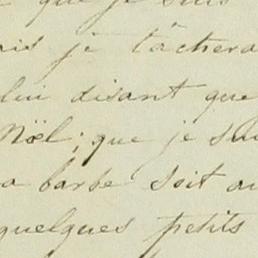 que je suis
je tâchera
lui disant que
Noël; que je sui
a barbe soit au
quelques petits